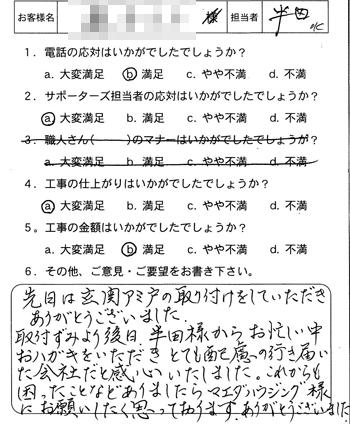 お客様名 様 担当者 半田
1．電話の応対はいかがでしたでしょうか？
a. 大変満足 b 満足 c. やや不満 d. 不満
2．サポーターズ担当者の応対はいかがでしたでしょうか？
a 大変満足 b. 満足 c. やや不満 d. 不満
3．職人さん( )のマナーはいかがでしたでしょうか？
a. 大変満足 b. 満足 c. やや不満 d. 不満
4．工事の仕上がりはいかがでしたでしょうか？
a 大変満足 b. 満足 c. やや不満 d. 不満
5。工事の金額はいかがでしたでしょうか？
a. 大変満足 b 満足 c. やや不満 d. 不満
6．その他、ご意見・ご要望をお書き下さい。
先日は玄関アミ戸の取り付けをしていただき
ありがとうございました.
取付ずみより後日、半田様からお忙い中
おハガキをいただき とても配慮の行き届い
た会社だと感心いたしました。これからも
困ったことなどありましたら マエダハウジング様
にお願いしたく思っております.ありがとうございました